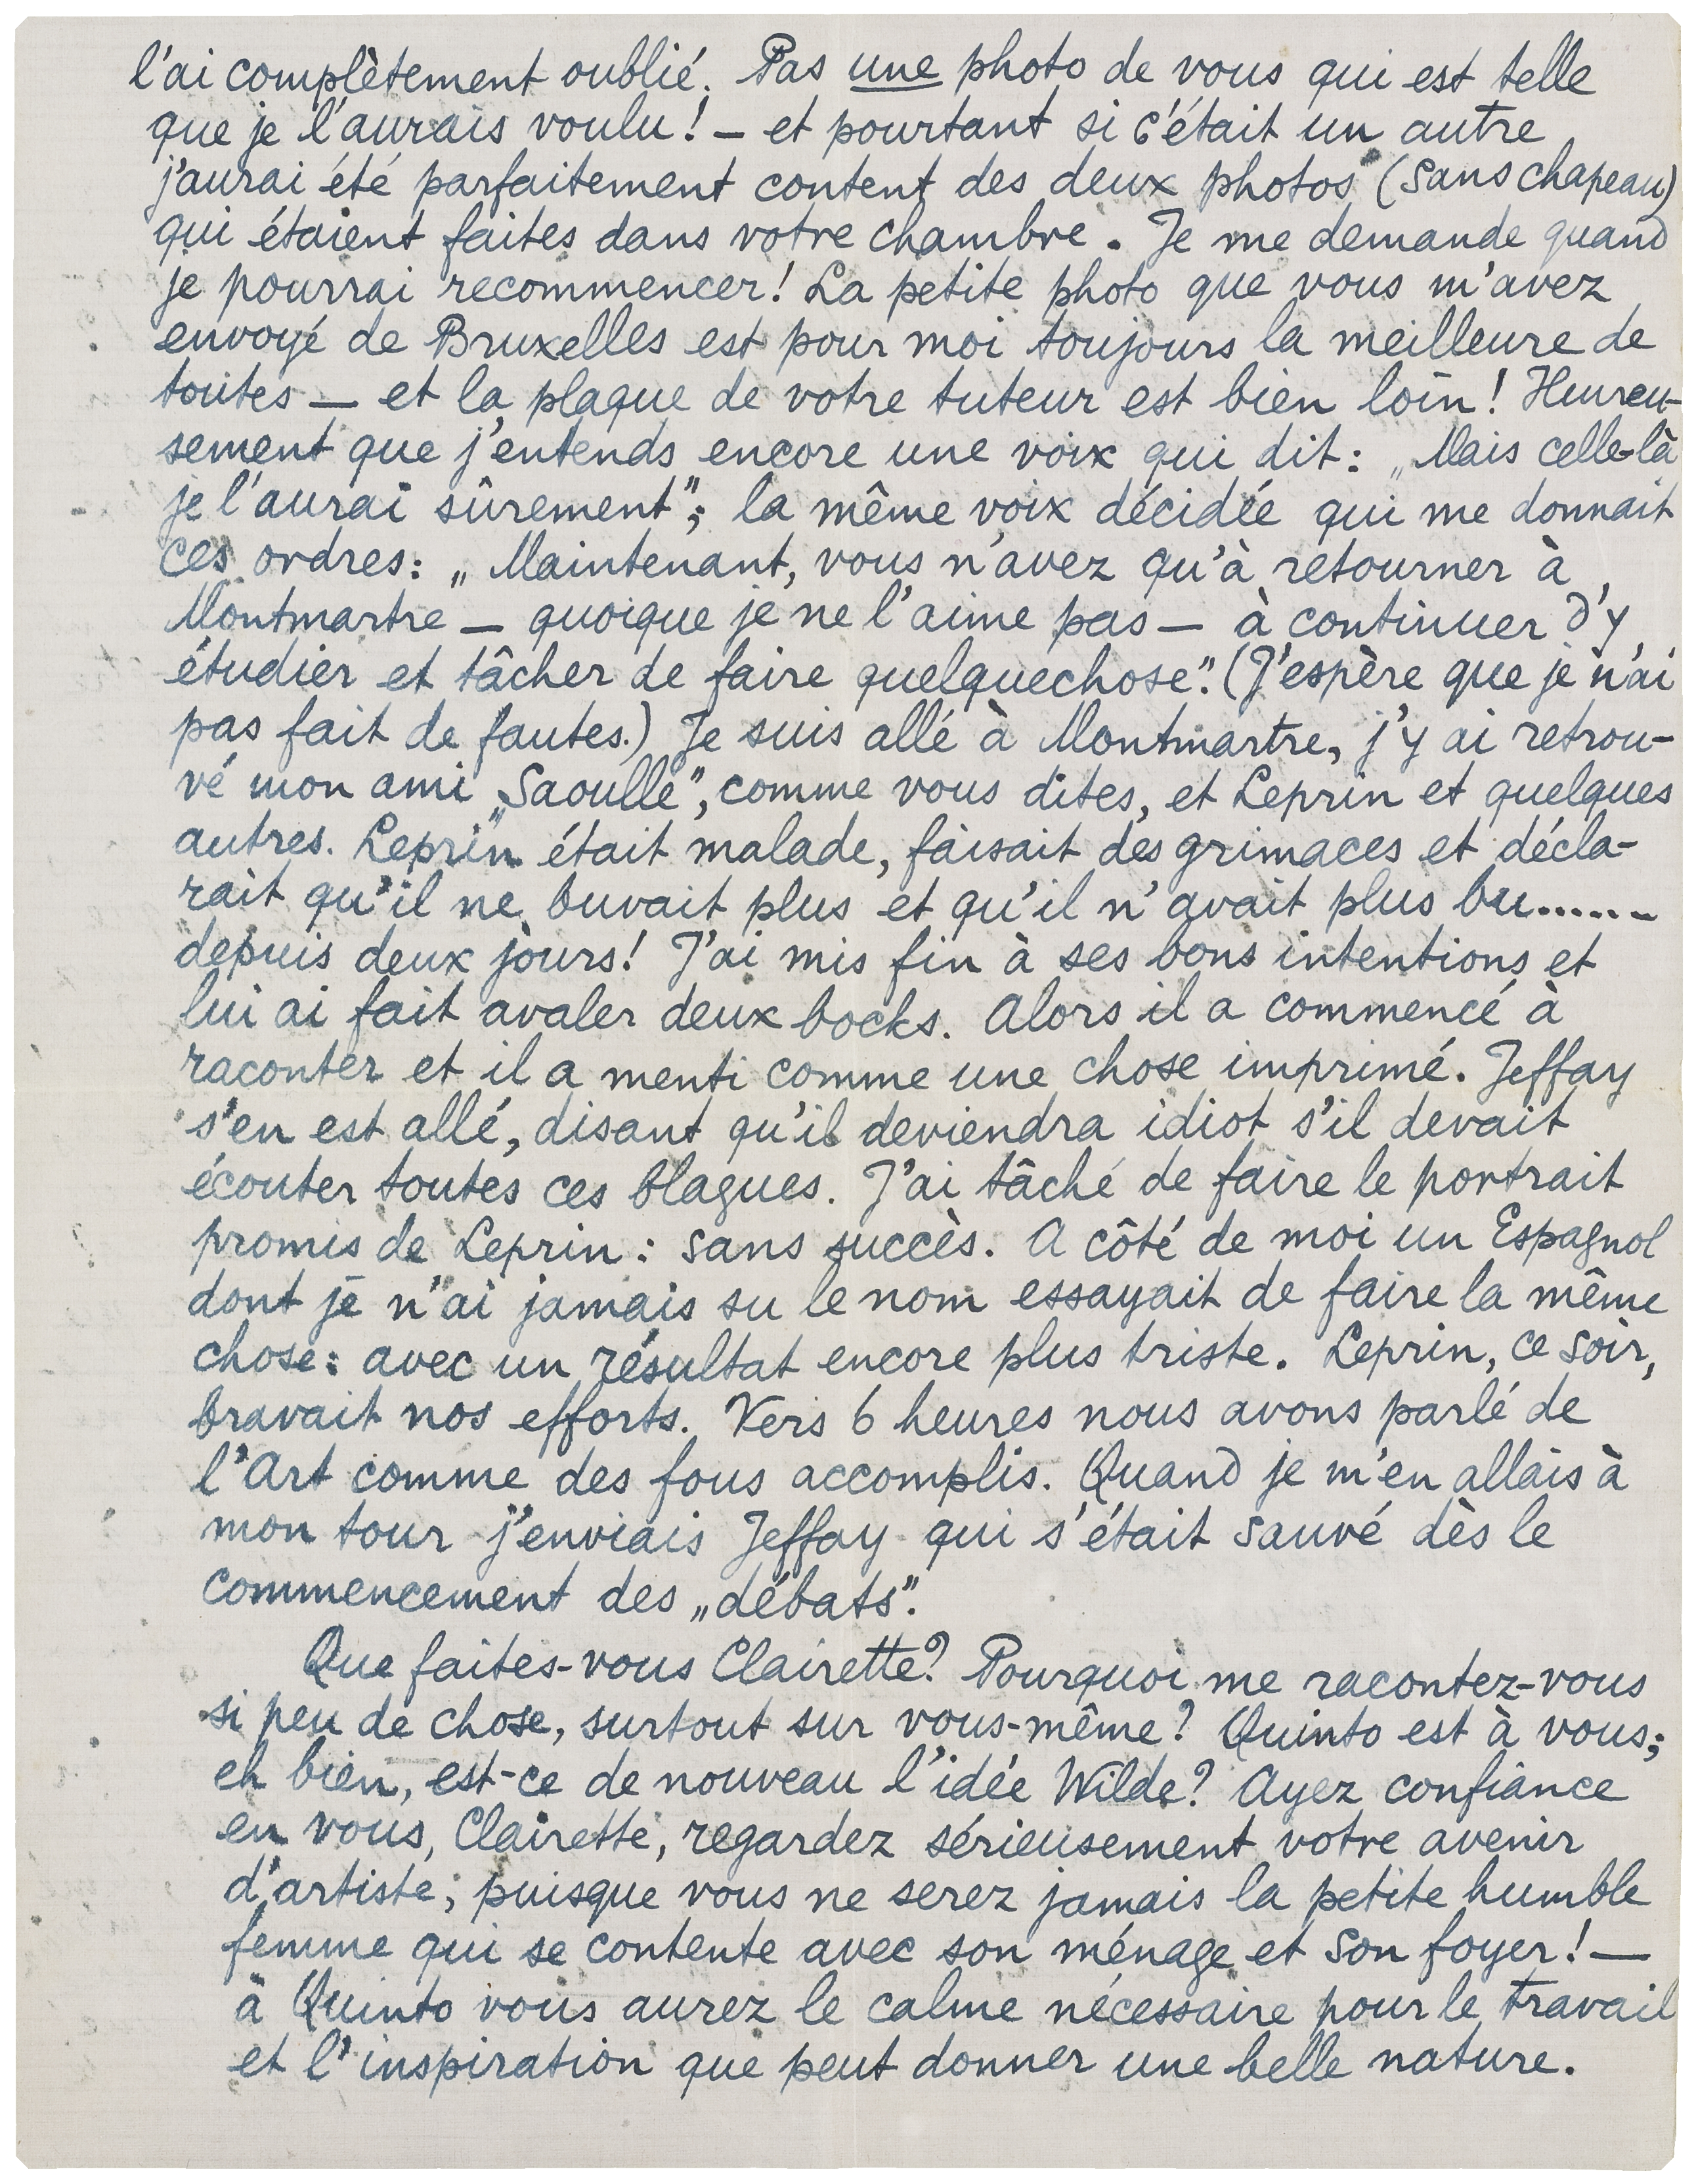 l'ai complètement oublié. Pas une photo de vous qui est telle
que je l'aurais voulu! — et pourtant si c'était un autre
j'aurai été parfaitement content des deux photos (sans chapeau)
qui étaient faites dans votre chambre. Je me demande quand
je pourrai recommencer! La petite photo que vous m'avez
envoyé de Bruxelles est pour moi toujours la meilleure de
toutes — et la plaque de votre tuteur est bien loin! Heureu-
sement que j'entends encore une voix qui dit: „Mais celle-là
je l'aurai sûrement"; la même voix décidée qui me donnait
ces ordres: „Maintenant, vous n'avez qu'à retourner à
Montmartre — quoique je ne l'aime pas — à continuer d'y
étudier et tâcher de faire quelquechose". (J'espère que je n'ai
pas fait de fautes.) Je suis allé à Montmartre, j'y ai retrou-
vé mon ami „Saoulle", comme vous dites, et Leprin et quelques
autres. Leprin était malade, faisait des grimaces et décla-
rait qu'il ne buvait plus et qu'il n'avait plus bu.......
depuis deux jours! J'ai mis fin à ses bons intentions et
lui ai fait avaler deux bocks. Alors il a commencé à
raconter et il a menti comme une chose imprimé. Jeffay
s'en est allé, disant qu'il deviendra idiot s'il devait
écouter toutes ces blagues. J'ai tâché de faire le portrait
promis de Leprin: sans succès. A côté de moi un Espagnol
dont je n'ai jamais su le nom essayait de faire la même
chose: avec un résultat encore plus triste. Leprin, ce soir,
bravait nos efforts. Vers 6 heures nous avons parlé de
l'Art comme des fous accomplis. Quand je m'en allais à
mon tour j'enviais Jeffay qui s'était sauvé dès le
commencement des „débats".
Que faites-vous Clairette? Pourquoi me racontez-vous
si peu de chose, surtout sur vous-même? Quinto est à vous;
eh bien, est-ce de nouveau l'idée Wilde? Ayez confiance
en vous, Clairette, regardez sérieusement votre avenir
d'artiste; puisque vous ne serez jamais la petite humble
femme qui se contente avec son ménage et son foyer! —
à Quinto vous aurez le calme nécessaire pour le travail
et l'inspiration que peut donner une belle nature.